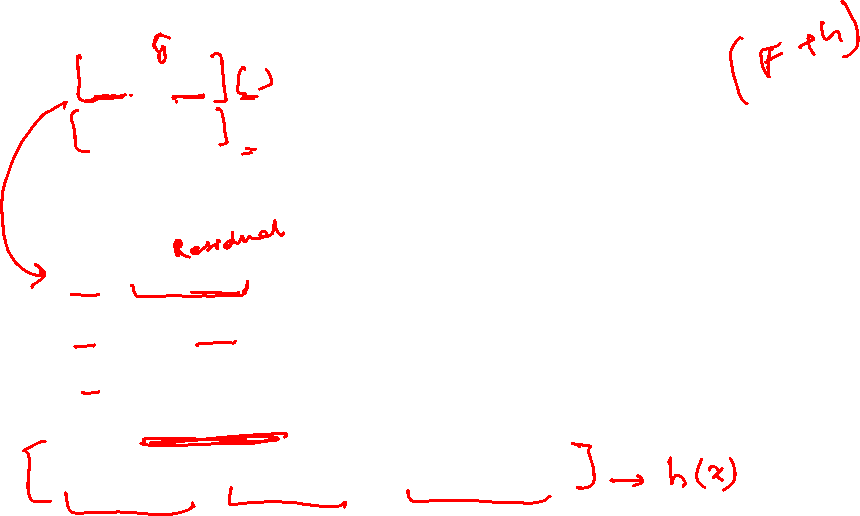 (F+h)
Residual
→ h(x)